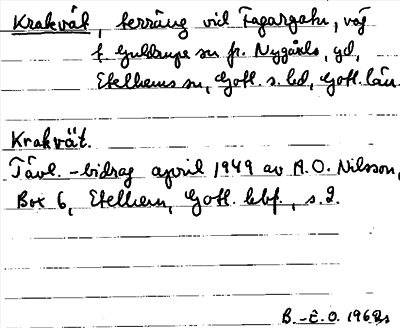 Krakvät, terräng vid Fagargatu, väg
t. Guldrupe sn fr. Nygårds, gd,
Etelhems sn, Gotl. s. hd, Gotl. län.
Krakvät.
Tävl.-bidrag april 1949 av A.O. Nilsson,
Box 6, Etelhem, Gotl. bbf., s. 2.
B.-E.O. 1968